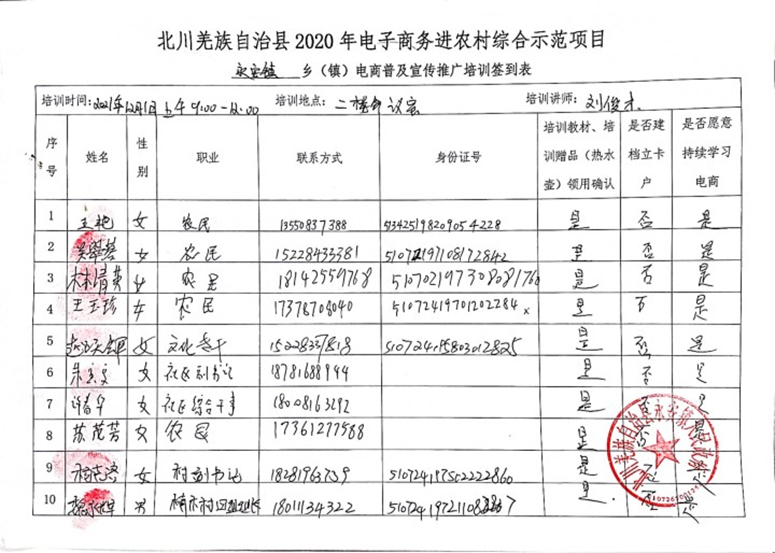 北川羌族自治县2020年电子商务进农村综合示范项目
永安镇 乡（镇）电商普及宣传推广培训签到表
培训时间：2021年12月1日上午9:00-12:00 培训地点：二楼会议室 培训讲师：刘俊才
序号 姓名 性别 职业 联系方式 身份证号 培训教材、培训赠品（热水壶）领用确认 是否建档立卡户 是否愿意持续学习电商
1 王艳 女 农民 13550837388 513425198209054228 是 否 是
2 女 农民 15228433381 510721197108172842 是 否 是
3 林清英 女 农民 18142559768 51070219730808176 是 否 是
4 王玉珍 女 农民 17378708040 51072419701202284x 是 否 是
5 女 文化专干 510724 是 否 是
6 女 社区副书记 18781688944 是 否 是
7 许春华 女 社区综合干事 18008163292 是 否 是
8 苏茂芳 女 农民 17361277588 是 否 是
9 女 村副书记 18281963759 510724197502222860 是 否
10 男 18011134322 510724197211082867 是 否
北川羌族自治县永安镇人民政府